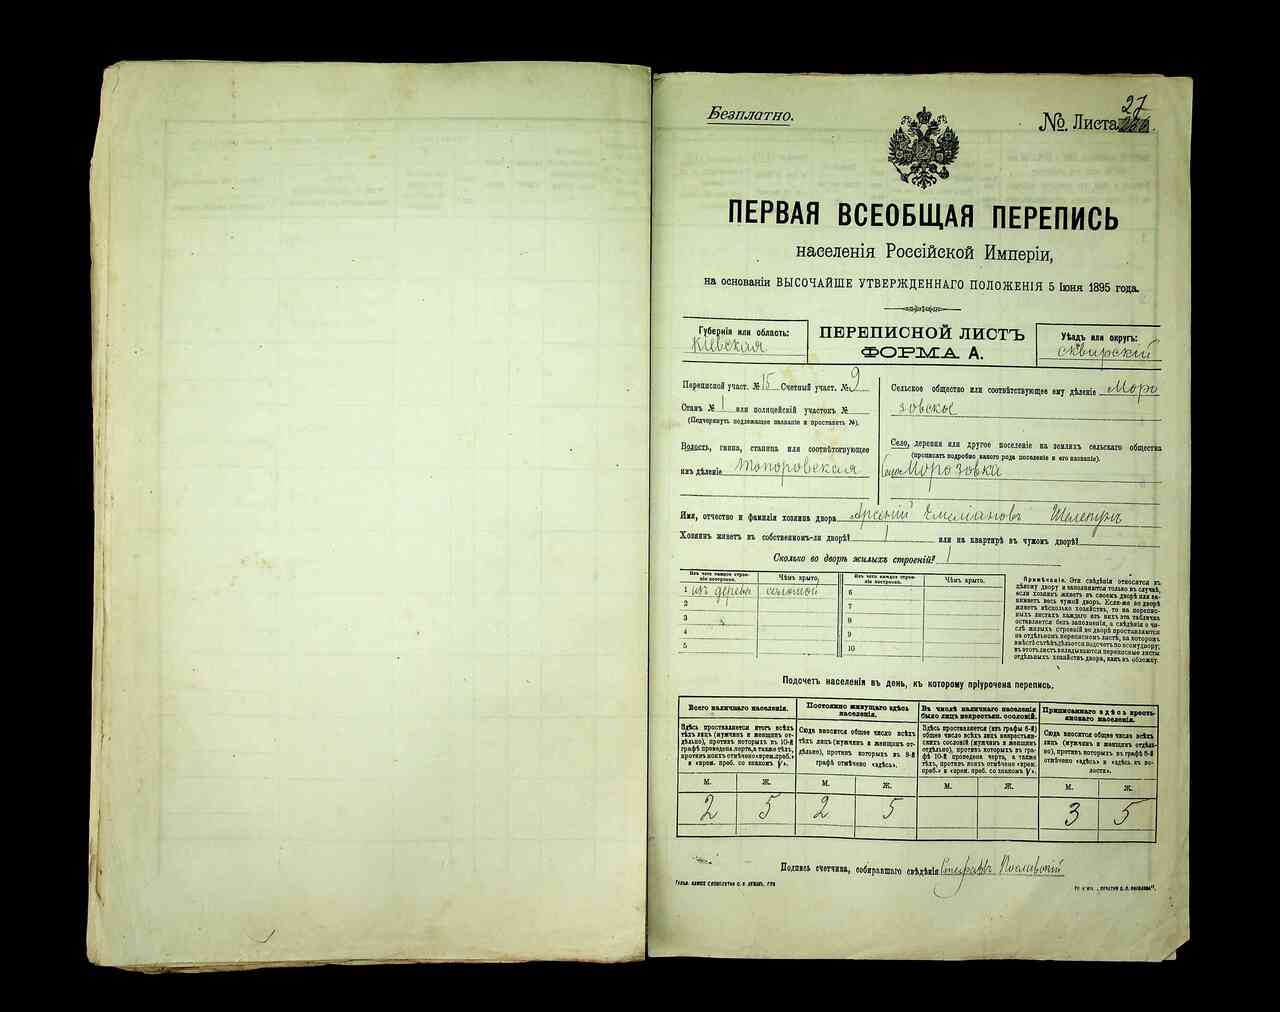 Безплатно.
27
№ Листа
ПЕРВАЯ ВСЕОБЩАЯ ПЕРЕПИСЬ
населенія Россійской Имперіи,
на основаніи ВЫСОЧАЙШЕ УТВЕРЖДЕННАГО ПОЛОЖЕНІЯ 5 Іюня 1895 года.
Губернія или область:
Кіевская
ПЕРЕПИСНОЙ ЛИСТЪ
ФОРМА А.
Уѣздъ или округъ:
сквирскій
Переписной участ. № 15 Счетный участ. № 9
Станъ № 1 или полицейскій участокъ №
(Подчеркнуть подлежащее названіе и проставить №).
Волость, гмина, станица или соотвѣтствующее
имъ дѣленіе Топоровская
Сельское общество или соотвѣтствующее ему дѣленіе Моро
зовское
Село, деревня или другое поселеніе на земляхъ сельскаго общества
(прописать подробно какого рода поселеніе и его названіе).
село Морозовка
Имя, отчество и фамилія хозяина двора Арсеній Емеліановъ Шелепунъ
Хозяинъ живетъ въ собственномъ-ли дворѣ? 1 или на квартирѣ въ чужомъ дворѣ?
Сколько во дворѣ жилыхъ строеній? 1
Изъ чего каждое строе-
ніе построено.
Чѣмъ крыто.
Изъ чего каждое строе-
ніе построено.
Чѣмъ крыто.
1 изъ дерева соломой 6
2 7
3 8
4 9
5 10
Примѣчаніе. Эти свѣдѣнія относятся къ
цѣлому двору и заполняются только въ случаѣ,
если хозяинъ живетъ въ своемъ дворѣ или за-
нимаетъ весь чужой дворъ. Если-же во дворѣ
живетъ нѣсколько хозяйствъ, то на перепис-
ныхъ листахъ каждаго изъ нихъ эта табличка
оставляется безъ заполненія, а свѣдѣнія о чи-
слѣ жилыхъ строеній во дворѣ проставляются
на отдѣльномъ переписномъ листѣ, на которомъ
вмѣстѣ съ тѣмъ дѣлается подсчетъ по всему двору;
въ этотъ листъ вкладываются переписные листы
отдѣльныхъ хозяйствъ двора, какъ въ обложку.
Подсчетъ населенія въ день, къ которому пріурочена перепись.
Всего наличнаго населенія.
Здѣсь проставляется итогъ всѣхъ
тѣхъ лицъ (мужчинъ и женщинъ от-
дѣльно), противъ которыхъ въ 10-й
графѣ проведена черта, а также тѣхъ,
противъ коихъ отмѣчено «врем. преб.»
и «врем. преб. со знакомъ V».
Постоянно живущаго здѣсь
населенія.
Сюда вносится общее число всѣхъ
тѣхъ лицъ (мужчинъ и женщинъ от-
дѣльно), противъ которыхъ въ 9-й
графѣ отмѣчено «здѣсь».
Въ числѣ наличнаго населенія
было лицъ некрестьян. сословій.
Здѣсь проставляется (изъ графы 6-й)
общее число всѣхъ лицъ некрестьян-
скихъ сословій (мужчинъ и женщинъ
отдѣльно), противъ которыхъ въ гра-
фѣ 10-й проведена черта, а также
тѣхъ, противъ коихъ отмѣчено «врем.
преб.» и «врем. преб. со знакомъ V».
Приписаннаго здѣсь кресть-
янскаго населенія.
Сюда вносится общее число всѣхъ
лицъ (мужчинъ и женщинъ отдѣль-
но), противъ которыхъ въ графѣ 8-й
отмѣчено «здѣсь» и «здѣсь въ во-
лости».
М. Ж. М. Ж. М. Ж. М. Ж.
2 5 2 5 3 5
Подпись счетчика, собиравшаго свѣдѣнія